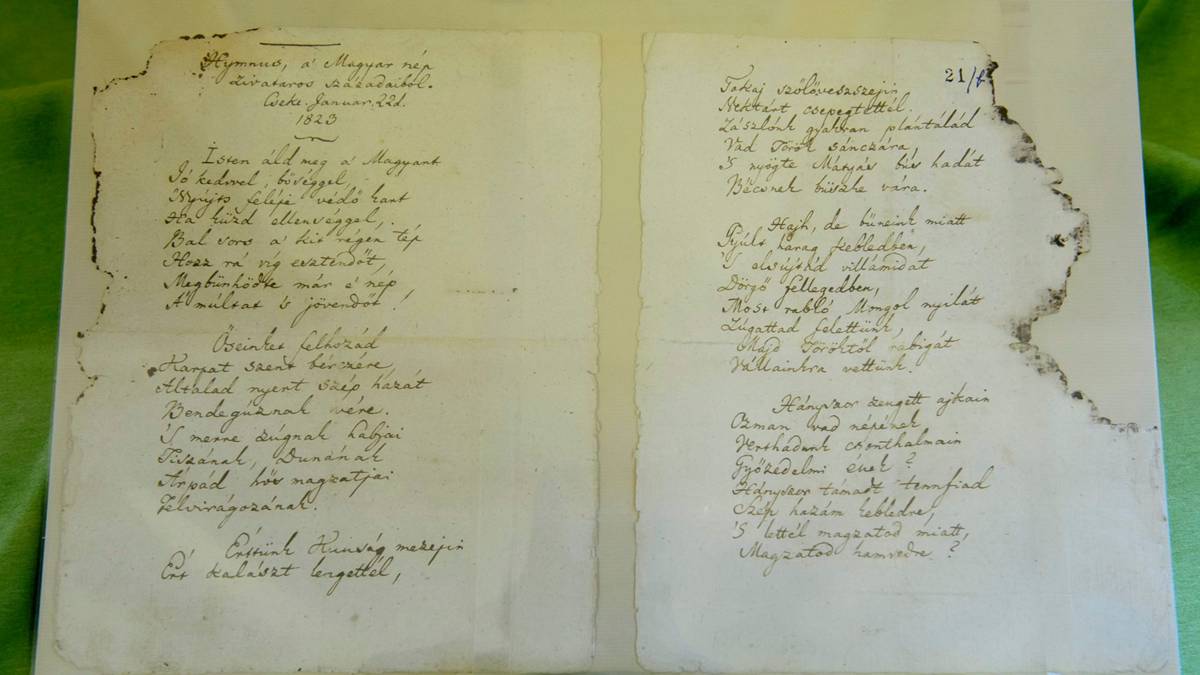 Hymnus, a' Magyar nép
zivataros századaiból.
Cseke. Januar. 22d.
1823
Isten áld meg a' Magyart
Jó kedvvel, bőséggel,
Nyújts feléje védő kart
Ha küzd ellenséggel,
Bal sors a' kit régen tép
Hozz rá víg esztendőt,
Megbünhödte már é nép
A' múltat 's jövendőt!
Őseinket felhozád
Karpat szent bérczére,
Általad nyert szép hazát
Bendegúznak vére.
'S merre zúgnak habjai
Tiszának, Dunának
Árpád hős magzatjai
Felvirágozának.
Értünk Kunság mezejin
Ért kalászt lengettél,
21/b
Tokaj szőlővesszejin
Nektárt csepegtettél.
Zászlónk gyakran plántálád
Vad Török sánczára,
'S nyögte Mátyás bús hadát
Bécsnek büszke vára.
Hajh, de büneink miatt
Gyúlt harag kebledben,
'S elsújtád villámidat
Dörgő fellegedben,
Most rabló Mongol nyilát
Zúgattad felettünk,
Majd Töröktől rabigát
Vállainkra vettünk.
Hányszor zengett ajkain
Ozman vad népének
Vert hadunk csonthalmain
Győzedelmi ének?
Hányszor támadt tennfiad
Szép hazám kebledre,
'S lettél magzatod miatt,
Magzatod hamvedre?